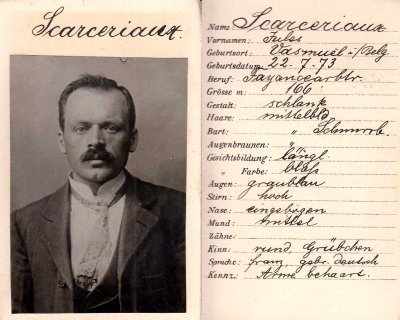 Scarceriaux.
Name: Scarceriaux
Vornamen: Jules
Geburtsort: Vasmuël-/Belg
Geburtsdatum 22.7.73
Beruf: Fayancearbtr.
Grösse m: 166
Gestalt: schlank
Haare: mittelbld
Bart: " Schnurrb.
Augenbraunen: "
Gesichtsbildung: längl
" Farbe: blass
Augen: graublau
Stirn: hoch
Nase: eingebogen
Mund: mittel
Zähne:
Kinn: rund, Grübchen
Sprache: franz, gebr. deutsch
Kennz.: Arme behaart.